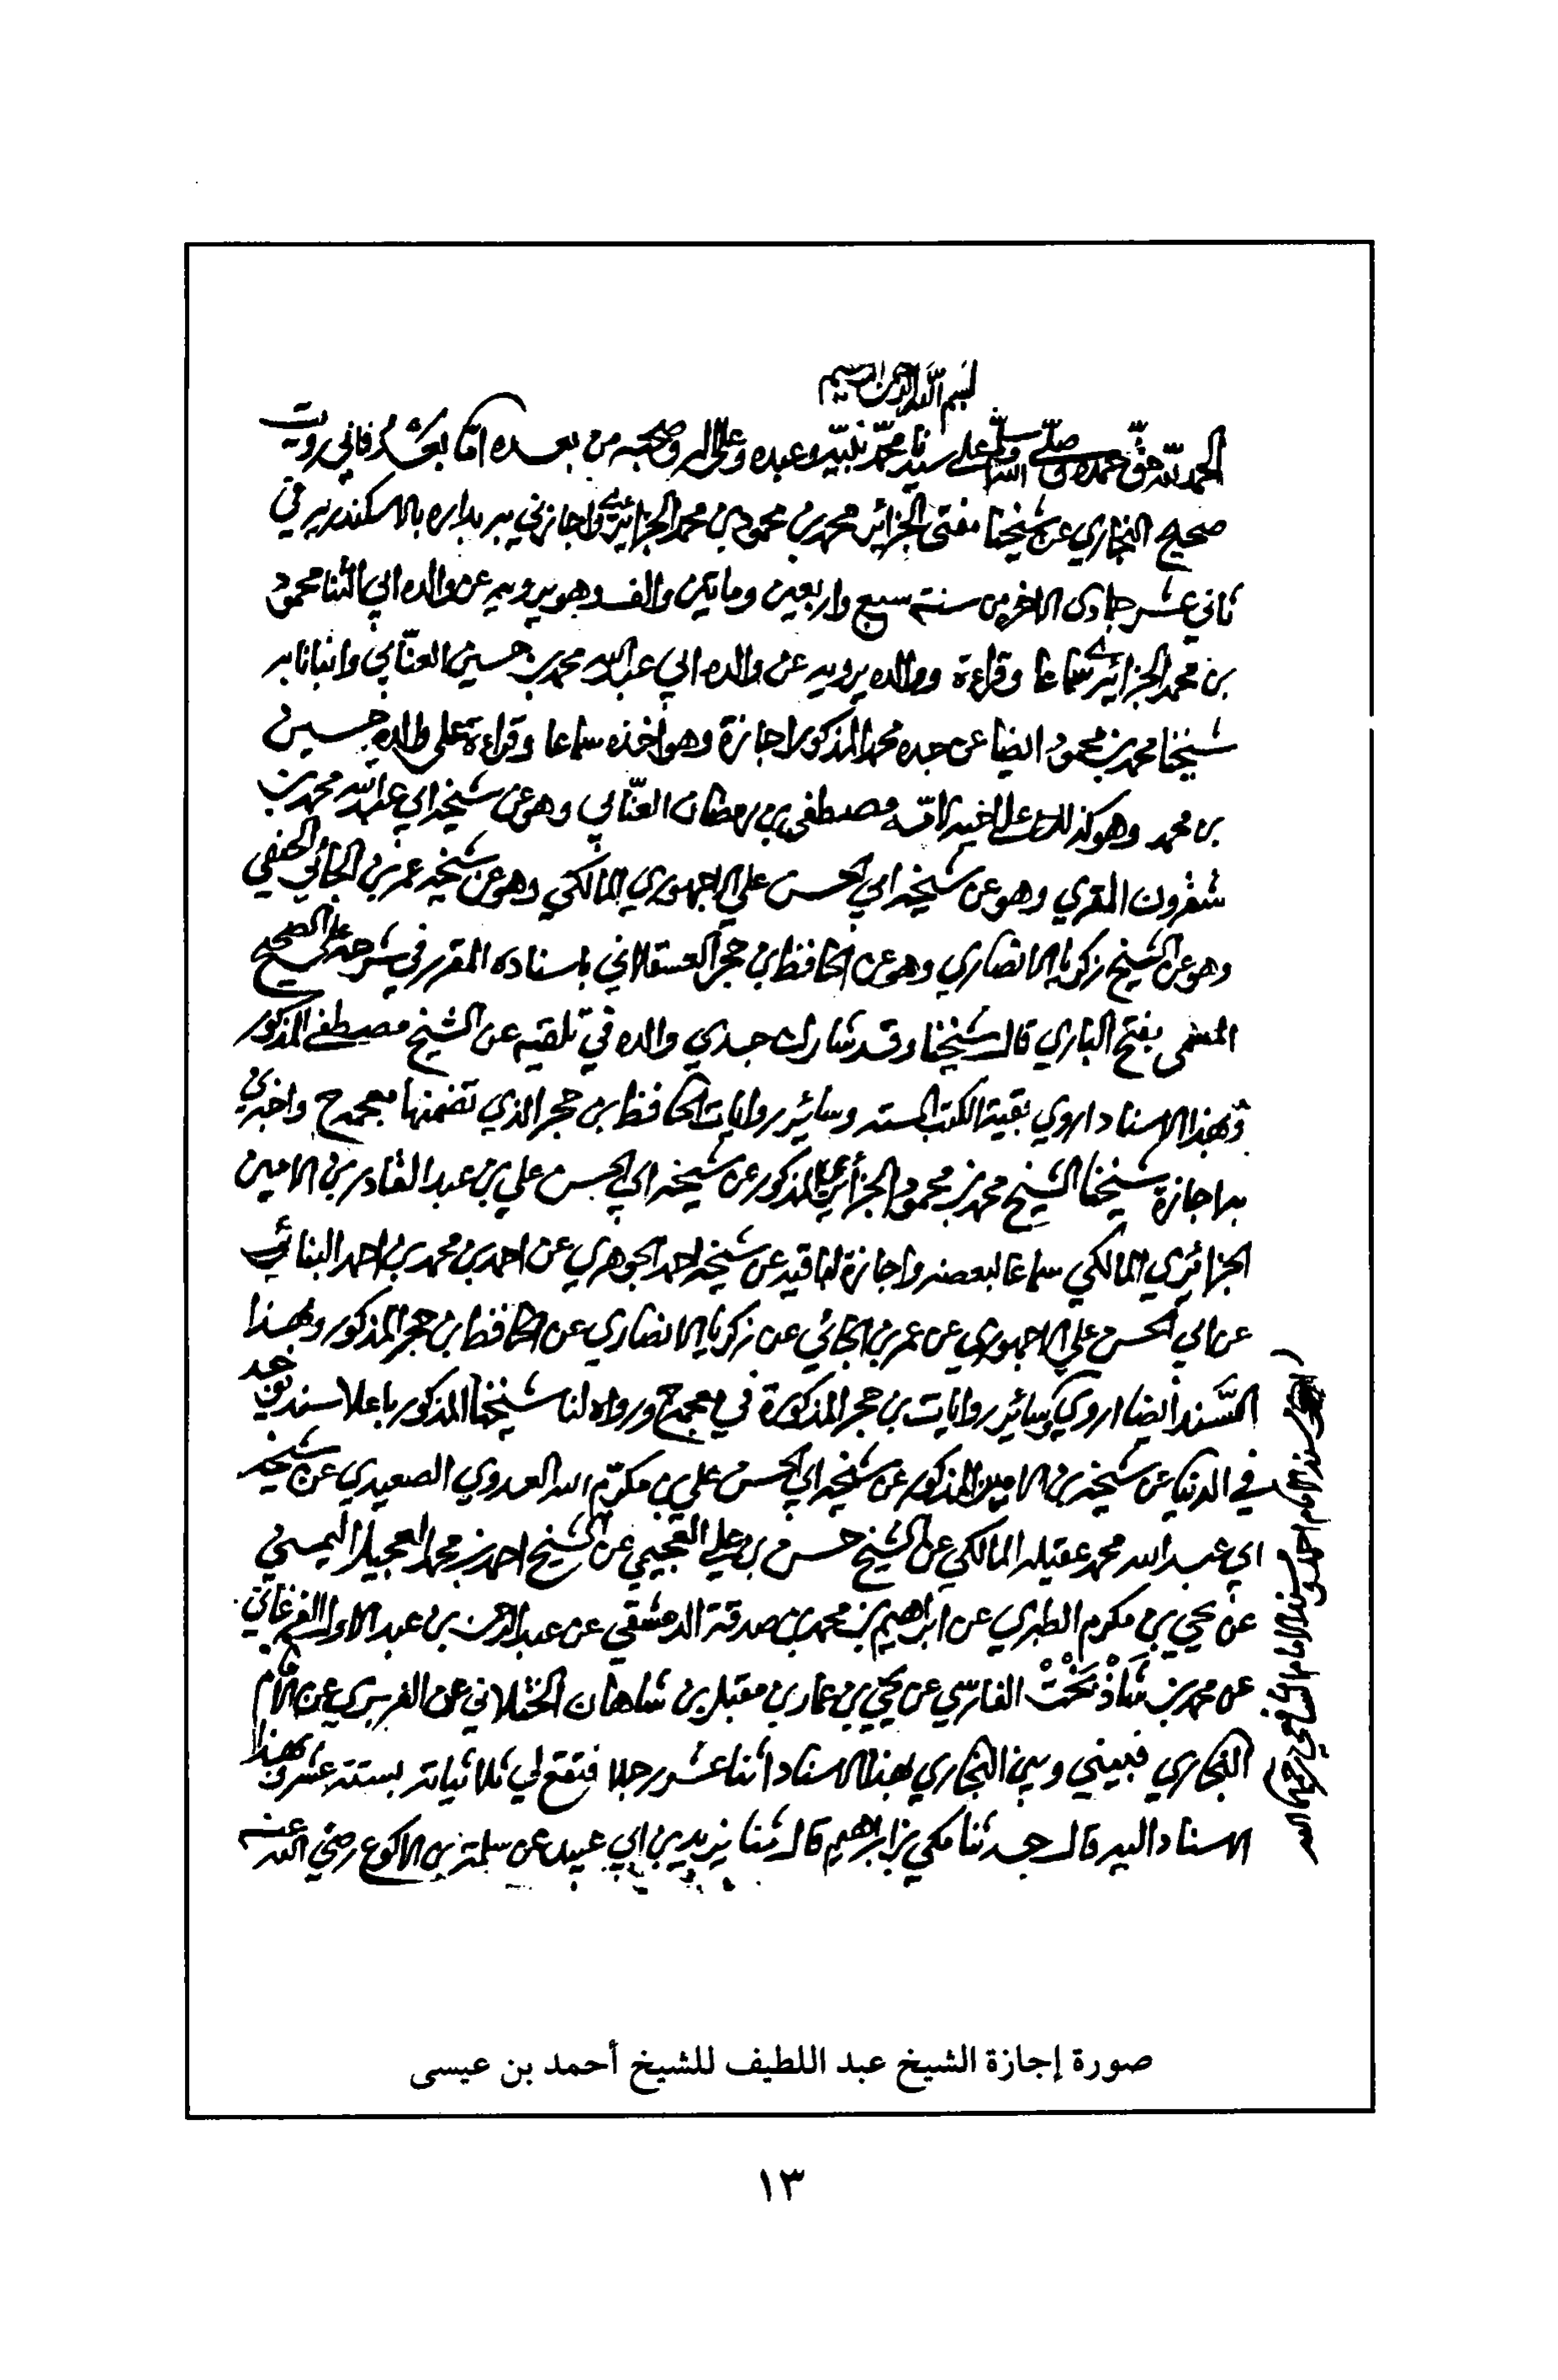 بسم الله الرحمن الرحيم
الحمد لله حق حمده وصلى الله وسلم على سيدنا محمد نبيه وعبده وعلى اله وصحبه من بعده اما بعد فاني رويت
صحيح البخاري عن شيخنا مفتى الجزائر محمد بن محمود بن محمد الجزائري واجازني به بداره بالاسكندريه في
ثاني عشر جمادى الاخره من سنة سبع واربعين ومايتين والف وهو يرويه عن والده ابي الثنا محمود
بن محمد الجزائري سماعا وقراءة ووالده يرويه عن والده ابي عبد الله محمد بن حسين العنابي وانبانا به
شيخنا محمد بن محمود ايضا عن جده محمد المذكور اجازة وهو اخذه سماعا وقراءة على والده حسين
بن محمد وهو كذلك على اخيه لامه مصطفى بن رمضان العنابي وهو عن شيخه ابي عبد الله محمد بن
شقرون المقري وهو عن شيخه ابي الحسن علي الاجهوري المالكي وهو عن شيخه عمر بن الجائي الحنفي
وهو عن الشيخ زكريا الانصاري وهو عن الحافظ بن حجر العسقلاني باسناده المقرر في شرحه على الصحيح
المسمى بفتح الباري قال شيخنا وقد شارك جدي والده في تلقيه عن الشيخ مصطفى المذكور
وبهذا الاسناد اروي بقية الكتب الستة وسائر روايات الحافظ بن حجر الذي تضمنها معجمه ح واخبرني
به اجازة شيخنا الشيخ محمد بن محمود الجزائري المذكور عن شيخه ابي الحسن علي بن عبد القادر بن الامين
الجزائري المالكي سماعا لبعضه واجازة لباقيه عن شيخه احمد الجوهري عن احمد بن محمد بن احمد البنائي
عن ابي الحسن علي الاجهوري عن عمر بن الجائي عن زكريا الانصاري عن الحافظ بن حجر المذكور وبهذا
السند ايضا اروي سائر روايات بن حجر المذكورة في معجمه ح ورواه لنا شيخنا المذكور باعلا سند يوجد
في الدنيا عن شيخه بن الامين المذكور عن شيخه ابي الحسن علي بن مكرم الله العدوي الصعيدي عن شيخه
ابي عبد الله محمد عقيله المالكي عن الشيخ حسن بن علي العجيمي عن الشيخ احمد بن محمد العجيل اليمني
عن يحيى بن مكرم الطبري عن ابراهيم بن محمد بن صدقة الدمشقي عن عبد الرحمن بن عبد الاول الفرغاني
عن محمد بن شاذبخت الفارسي عن يحيى بن عمار بن مقبل بن شاهان الختلاني عن الفربري عن الامام
البخاري فبيني وبين البخاري بهذا الاسناد اثنا عشر رجلا فتقع لي ثلاثياته بستة عشر بهذا
الاسناد اليه قال حدثنا مكي بن ابراهيم قال ثنا يزيد بن ابي عبيد عن سلمة بن الاكوع رضي الله عنه
سند الامام احمد وسند الامام الشافعي رحمهما الله
صورة إجازة الشيخ عبد اللطيف للشيخ أحمد بن عيسى
١٣